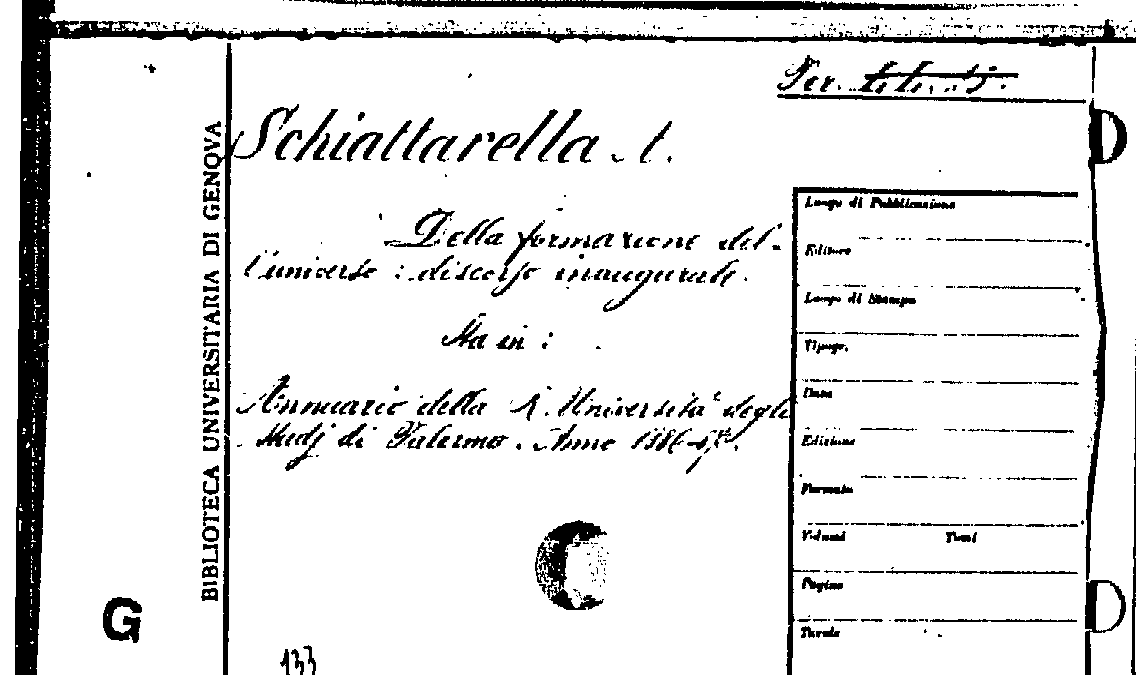 Per.
Schiattarella A.
Della formazione del-
l'universo : discorso inaugurale.
Sta in :
Annuario della R. Università degli
Studj di Palermo. Anno 1886-87.
BIBLIOTECA UNIVERSITARIA DI GENOVA
G
133
Luogo di Pubblicazione
Editore
Luogo di Stampa
Tipogr.
Data
Edizione
Formato
Volumi Tomi
Pagine
Tavole